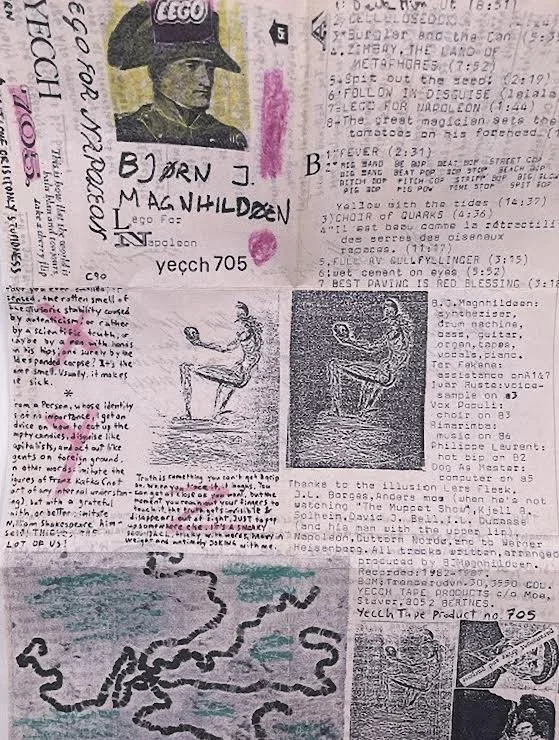 YECCH
705
LEGO FOR NAPOLEON
This is how far his world is
LEGO
5
BJØRN J.
MAGNHILDØEN
Lego For
Napoleon
yecch 705
C90
A
1. Out (8:51)
2. CELLULOSEDOCK
3. Burglar and the Can (5:3
4. ZIMBAY, THE LAND OF
METAPHORES. (7:52)
5. Spit out the seed! (2:19
6. FOLLOW IN DISGUISE (lalala
7. LEGO FOR NAPOLEON (1:44)
8. The great magician sets the
tomatoes on his forehead.(
B
1. FEVER (2:31)
2. BIG BAND BE BOP BEAT BOP STREET COP
BIG BANG BEAT POP BOP STOP BEACH
DITCH BOP PITCH-COP STRIP BOP BIG
PIG BOP PIG POW TIME STOP SPIT BOP
Yellow with the tides (14:37)
3) CHOIR of QUARKS (4:36)
4. "Il est beau comme la rétractili
des serres des oiseaux
rapaces. (11:47)
5. FULL AV GULLFYLLINGER (3:15)
6. wet cement on eyes (5:52)
7 BEST PAVING IS RED BLESSING (3:18
sensed, the rotten smell of
the illusoric stability caused
by autenticism or rather
by a scientific truth, or
maybe by a man with hands
in his hips and surely by he
suspended corpse? It's the
same smell. Usually, it makes
me sick.
*
From a Person, whose identity
is of no importance, I got an
advice on how to eat up the
empty candies, disguise like
capitalists, and act out like
agents on foreign ground.
In other words: imitate the
figures of Franz Kafka (not
art of any internal understan-
ing) but with a grateful
faith, or better: imitate
William Shakespeare him-
self!
LOT OF US!
Truth is something you can't get a grip
on. When you trace it it laughs. You
can get close as you want, but the
moment you reach out your fingers to
touch it, the truth gets invisible &
disappears out of sight. Just to pop
up somewhere else. It's a sneaky
scoundrel, tricky with words, heavy in
weight and entirely JOKING with me.
B.J.Magnhildøen:
syntheziser,
drum machine,
bass, guitar,
organ, tapes,
vocals, piano.
Tor Føkene:
assistance on A1&7
Ivar Ruste: voice-
sample on a3
Vox Populi:
choir on B3
Rimarimba:
music on B6
Philippe Laurent:
hot tip on B2
Dog As Master:
computer on a5
Thanks to the illusion Lars Fleek,
J.L. Borges, Anders moe (when he's not
watching "The Muppet Show", Kjell B.
Solheim, David D. Bell, I.L. Ducasse
(and his man with the upper lip)
Napoleon, Guttorm Nordø, and to Werner
Heisenberg. All tracks written, arranged
produced by B.Magnhildøen.
Recorded 1982-1987.
BJM; 30, 3550 GOL.
YECCH TAPE PRODUCTS c/o Moe,
Staver, 3052 BERTNES.
Yecch Tape Product no. 705